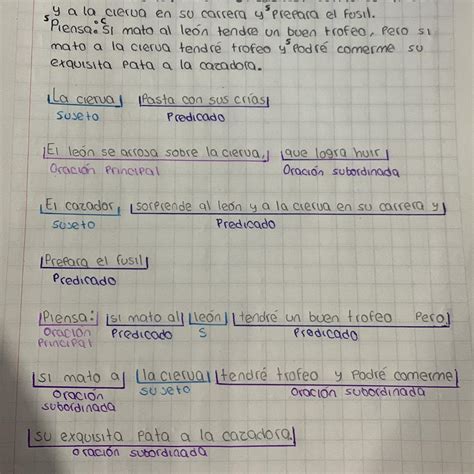 y a la cierva en su carrera y s prepara el fusil.
s Piensa: si mato al león tendre un buen trofeo, pero si
mato a la cierva tendré trofeo y s podré comerme su
exquisita pata a la cazadora.
La cierva pasta con sus crías
sujeto Predicado
El león se arroja sobre la cierva, que logra huir
Oración Principal Oración subordinada
El cazador, sorprende al león y a la cierva en su carrera y
sujeto Predicado
Prepara el fusil
Predicado
Piensa: si mato al león tendré un buen trofeo Pero
Oración Principal Predicado S Predicado
si mato a la cierva tendré trofeo y podré comerme
oración subordinada sujeto oración subordinada
su exquisita pata a la cazadora.
oración subordinada